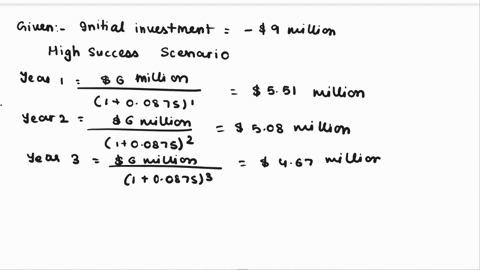 Given:- Initial investment = - $ 9 million
High Success Scenario
Year 1 = $ 6 million / (1+0.0875)¹ = $ 5.51 million
Year 2 = $ 6 million / (1+0.0875)² = $ 5.08 million
Year 3 = $ 6 million / (1+0.0875)³ = $ 4.67 million